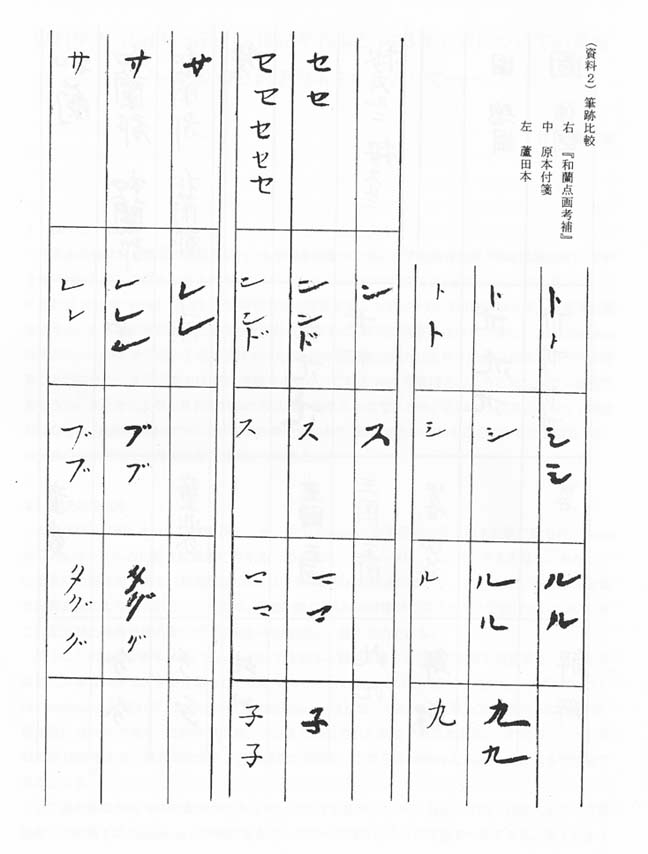 （資料２）筆跡比較
右　『和蘭点画考補』
中　原本付箋
左　蘆田本
トト シシ ルル
ト シ ルル 九九
トト シ ル 九
ン ス
セセ ンンド ス ママ 子
セセセセセ ンンド ス ママ 子子
サ レレ
サ レレレ ブブ タググ
サ レレ ブブ タググ